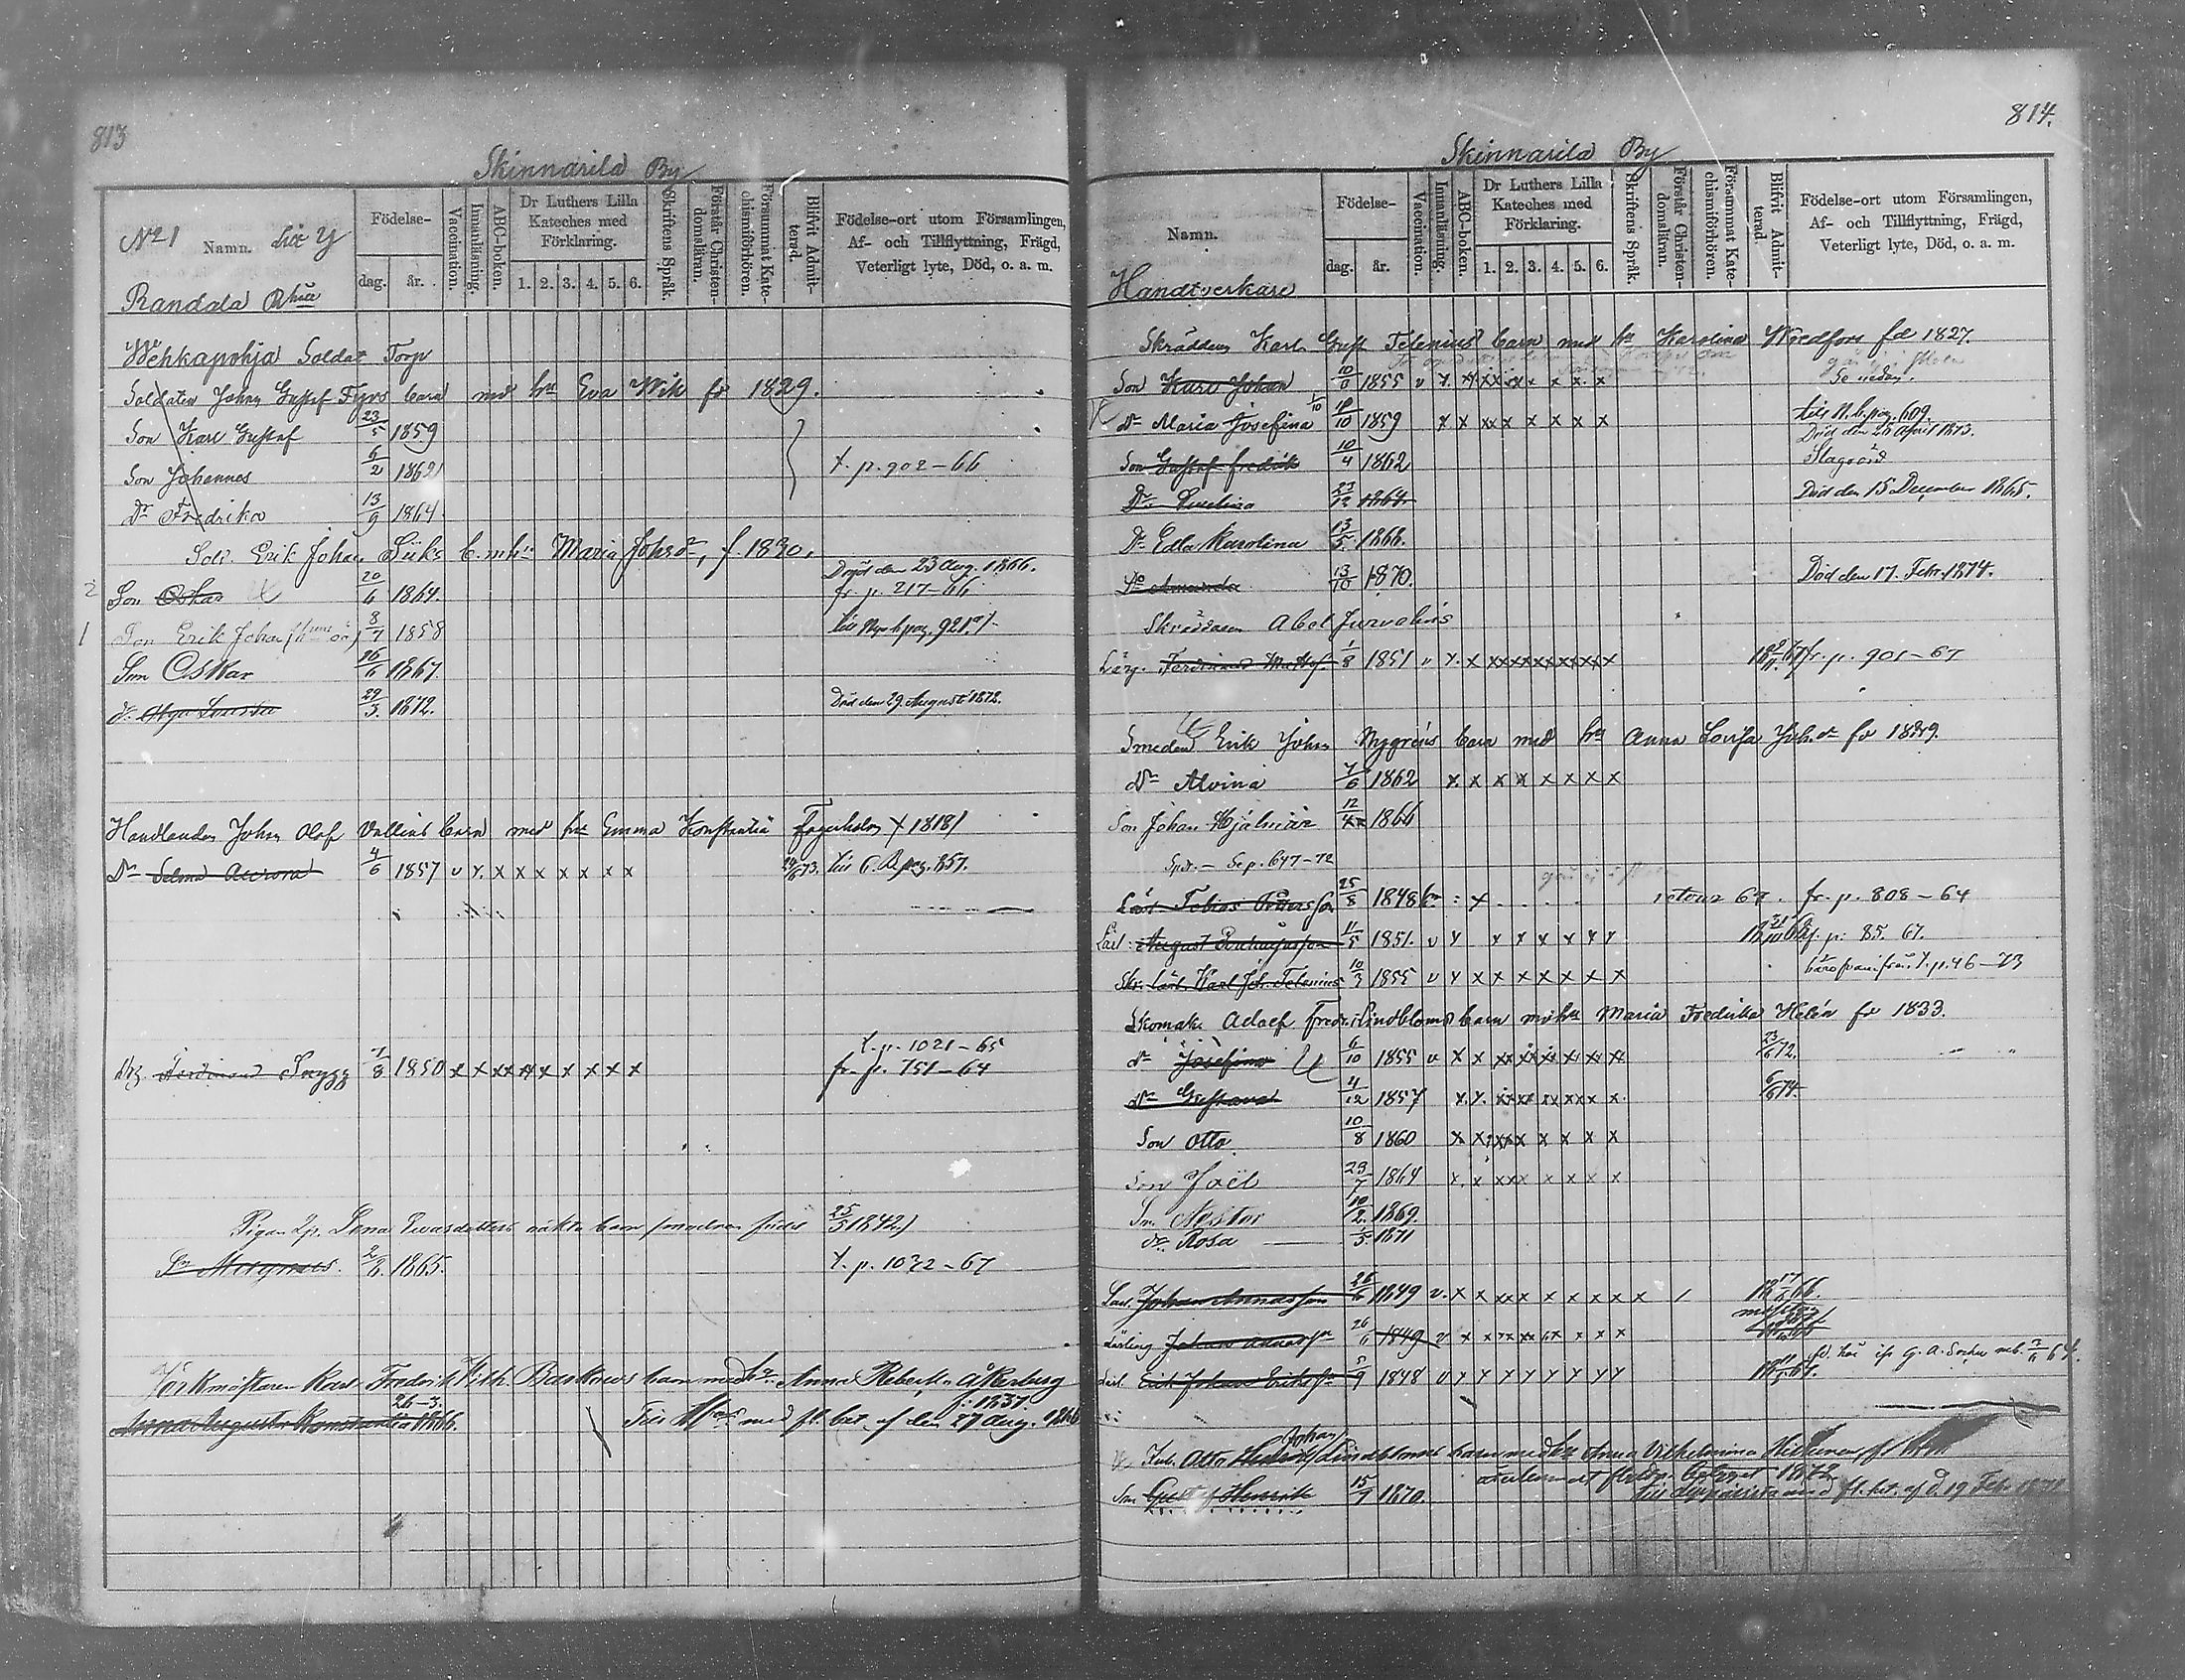 813
Skinnarila By
No 1 Namn. Litt Y
Födelse-
dag. år.
Vaccination.
Innanläsning.
ABC-boken.
Dr Luthers Lilla Kateches med Förklaring.
1. 2. 3. 4. 5. 6.
Skriftens Språk.
Förstår Christendomsläran.
Försummat Katechismiförhören.
Blifvit Admitterad.
Födelse-ort utom Församlingen, Af- och Tillflyttning, Frägd, Veterligt lyte, Död, o. a. m.
Randala
Wehkapohja Soldat Torp
Soldaten Johan Gustaf Fyrs barn med hu Eva Wik fd 1829.
Son Karl Gustaf 23/5 1859
Son Johannes 6/2 1862 t. p. 902-66
Dr Fredrika 13/9 1864
Sold. Erik Johan Siiks b. m. hu Maria Johsdr, f. 1830.
2 Son Oskar 20/6 1864. Död den 23 Aug. 1866.
fr. p. 217-66
1 Son Erik Johan 8/7 1858 pag. 921
Son Oskar 16/6 1867.
dr Louisa 29/3. 1872. Död den 29. Augusti 1872.
Handlanden Johan Olof Vallins barn med hu Emma Konstantia Fagerholm
Dr Selma Aurora 4/6 1857 v x. x x x x x x x 73. pag. 857.
t. p. 1021-65
Ferdinand Snygg 7/8 1850 x x xx x x x x x x fr. p. 751-64
Pigan Lena Evasdotters oäkta barn 25/5 1842)
Sn Magnus. 2/8. 1865. t. p. 1072-67
Karl Fredrik Wilh. barn med hu Anna Rebecka Åkerberg
f. 1837
Anna Augusta Konstantia 26-3. 1866. Till med fl. bet. af den 27 Aug. 1866
814.
Skinnarila By
Namn.
Födelse-
dag. år.
Vaccination.
Innanläsning.
ABC-boken.
Dr Luthers Lilla Kateches med Förklaring.
1. 2. 3. 4. 5. 6.
Skriftens Språk.
Förstår Christendomsläran.
Försummat Katechismiförhören.
Blifvit Admitterad.
Födelse-ort utom Församlingen, Af- och Tillflyttning, Frägd, Veterligt lyte, Död, o. a. m.
Handtverkare
Skräddaren Karl Gust Telenius barn med hu Karolina Wredfors fd 1827.
Son Karl Johan 10/3 1855 v x. x xx xx x x x x Se nedan.
Dr Maria Josefina 10/10 1859 x x xx x x x x x till N. b. pag. 609.
Död den 25 April 1873.
Son Gustaf Fredrik 10/4 1862 Slagrörd
Dr Evelina 27/12 1864. Död den 15 December 1865.
Dr Edla Karolina 13/5. 1866.
Do Amanda 13/10 1870. Död den 17. Febr. 1874.
Skräddaren Abel Jurvelius
Lärg. Ferdinand 1/8 1851 v x. x xxxxxxxxxx fr. p. 901-67
Smeden Erik Johan Nygréns barn med hu Anna Lovisa Johsdr fd 1829.
Dr Alvina 7/6 1862 x. x x x x x x x
Son Johan Hjalmar 12/4 1866
Se p. 647-72
Lärl Tobias 25/8 1848 x retour 67. fr. p. 808-64
Lärl: August 11/5 1851. v x x x x x x x fr. p. 85. 67.
Skr. lärl. Karl Joh. Telenius 10/3 1855 v x x x x x x x x t. p. 46-73
Skomak. Adolf Fredr. Lindbloms barn m. hu Maria Fredrika Helén fd 1833.
dr Josefina 6/10 1855 v x x xx xx xx xx xx xx 23/6 72.
dr Gustava 4/12 1857 x. x. xx xx xx xx x x. 6/6 74.
Son Otto 10/8 1860 x x xx x x x x x
Son Joël 29/7 1864 x. x xxx x x x x x
Sn. Nestor 10/2. 1869.
dr. Rosa 1/5. 1871
Lärl. Johan 26/6 1849 v. x x xx x x x x x x 1
Lärling Johan 26/6 1849 v x x xx xx xx x x x
Lärl. Erik Johan Eriksson 5/9 1848 v x x x x x x x x x
Otto Johan Lindbloms barn med hu Anna Vilhelmina
Son Henrik 15/9 1870. med fl. bet. af d. 19 Feb.